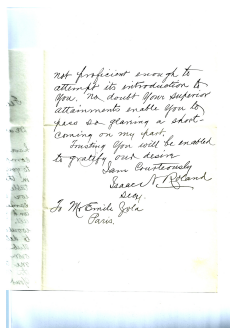 not proficient enough to
attempt its introduction to
you. No doubt your superior
attainments enable you to
pass so glaring a short-
coming on my part.
Trusting you will be enabled
to gratify our desire
I am Courteously
Isaac N. Roland
Secy.
To Mr Emile Zola
Paris.